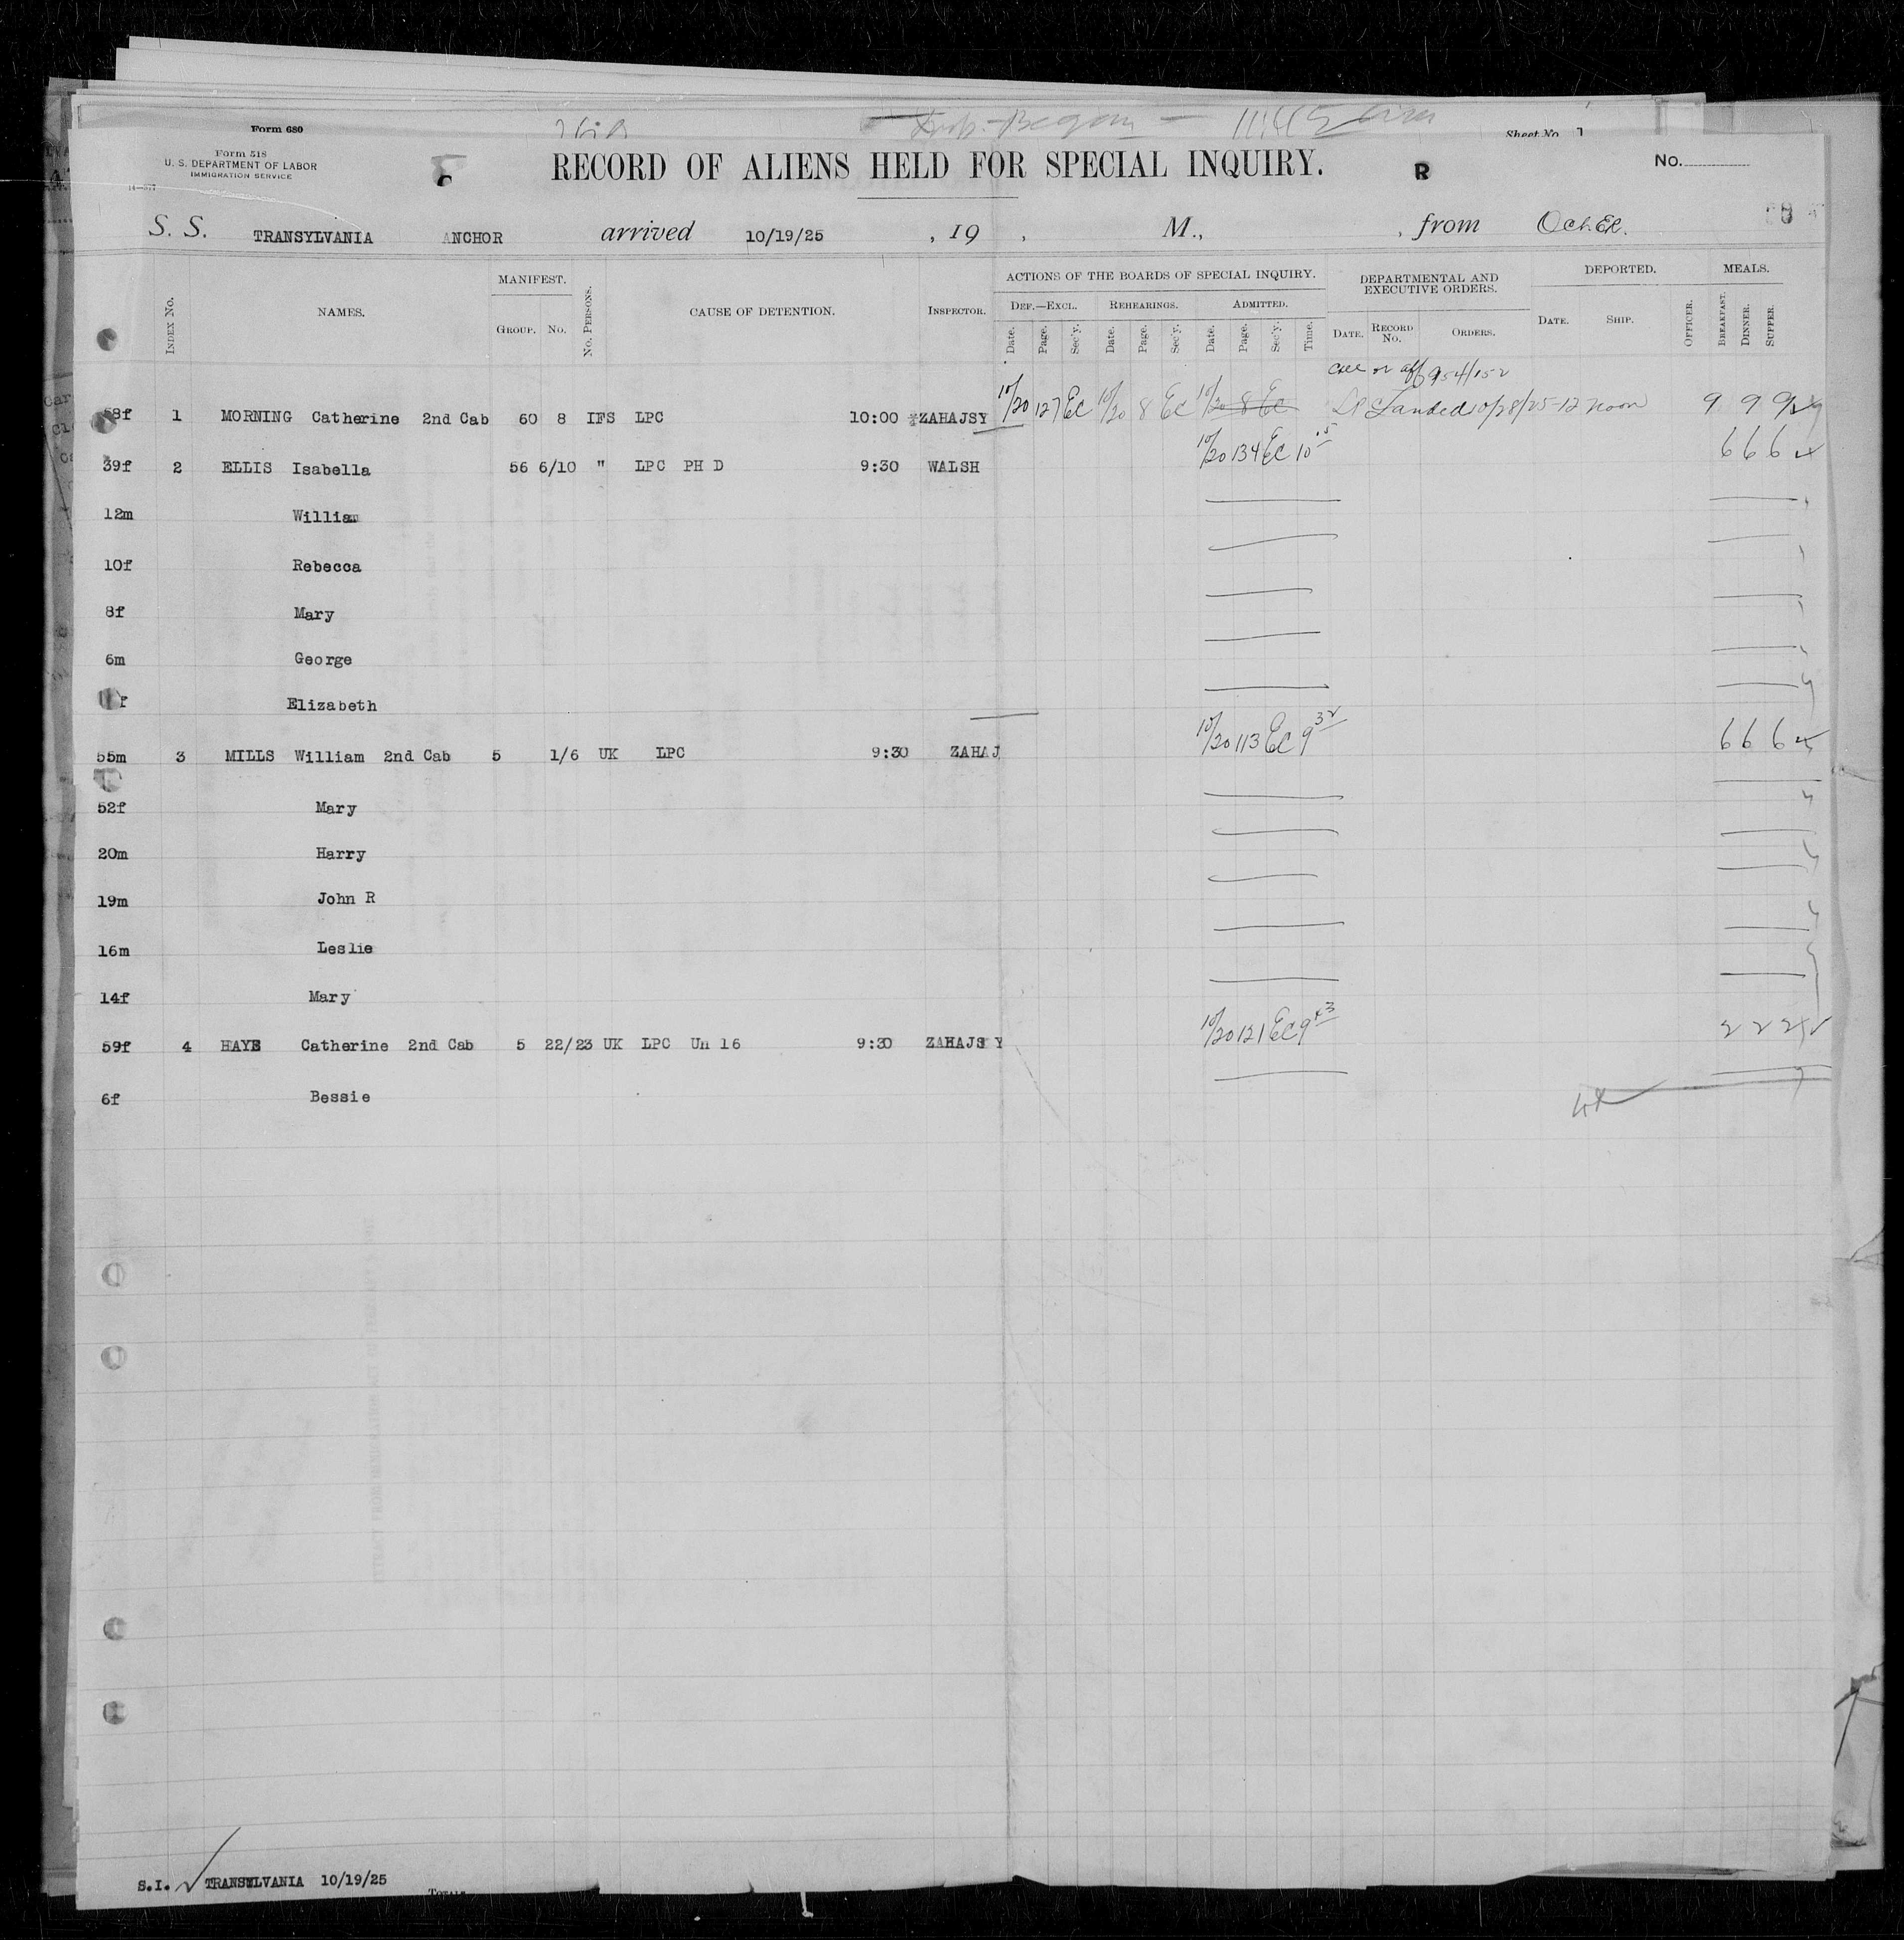 Form 680
Sheet No. 1
Form 518
U. S. DEPARTMENT OF LABOR
IMMIGRATION SERVICE
RECORD OF ALIENS HELD FOR SPECIAL INQUIRY.
R
No.
S. S. TRANSYLVANIA ANCHOR arrived 10/19/25 , 19 , M., , from
INDEX No. NAMES. MANIFEST. GROUP. No. No. PERSONS. CAUSE OF DETENTION. INSPECTOR. ACTIONS OF THE BOARDS OF SPECIAL INQUIRY. DEPARTMENTAL AND EXECUTIVE ORDERS. DEPORTED. MEALS.
DEF.—EXCL. REHEARINGS. ADMITTED.
Date. Page. Sec'y. Date. Page. Sec'y. Date. Page. Sec'y. Time. DATE. RECORD No. ORDERS. DATE. SHIP. OFFICER. BREAKFAST. DINNER. SUPPER.
58f 1 MORNING Catherine 2nd Cab 60 8 IFS LPC 10:00 ZAHAJSY 10/20 127 EC 10/20 8 EC 10/20 8 EC Landed 10/28/25-12 noon 9 9 9
39f 2 ELLIS Isabella 56 6/10 " LPC PH D 9:30 WALSH 10/20 134 EC 10 15 6 6 6
12m William
10f Rebecca
8f Mary
6m George
f Elizabeth
55m 3 MILLS William 2nd Cab 5 1/6 UK LPC 9:30 ZAHAJ 10/20 113 EC 9 32 6 6 6
52f Mary
20m Harry
19m John R
16m Leslie
14f Mary
59f 4 HAYE Catherine 2nd Cab 5 22/23 UK LPC Un 16 9:30 ZAHAJSY 10/20 121 EC 9 43 2 2 2
6f Bessie
S.I. TRANSYLVANIA 10/19/25